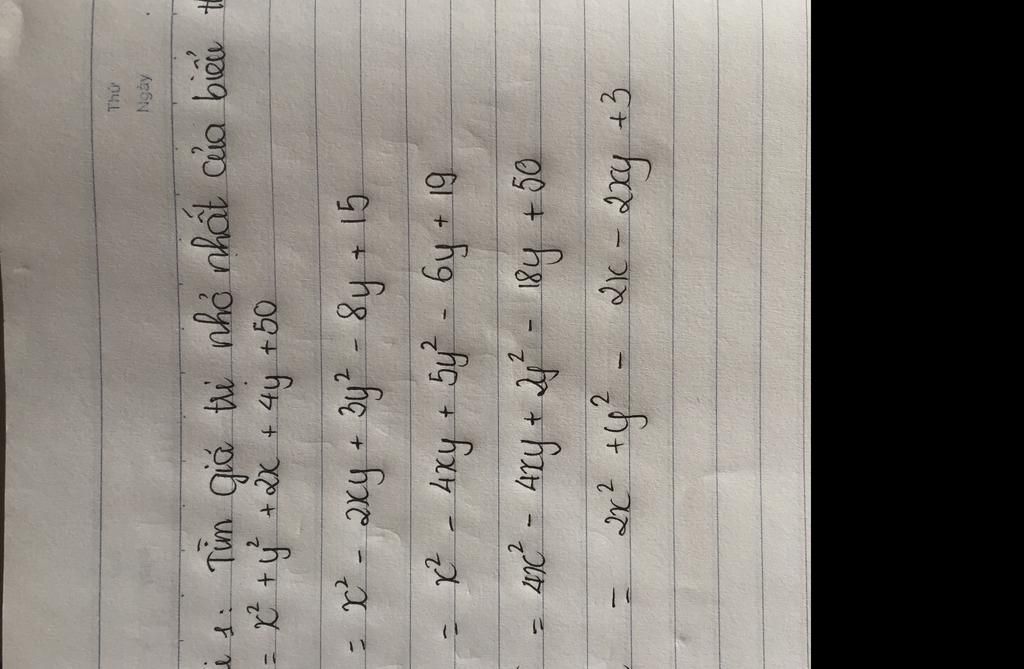 Thứ
Ngày
i 1: Tìm giá trị nhỏ nhất của biểu th
= x² + y² + 2x + 4y + 50
= x² - 2xy + 3y² - 8y + 15
= x² - 4xy + 5y² - 6y + 19
= 4x² - 4xy + 2y² - 18y + 50
= 2x² + y² - 2x - 2xy + 3